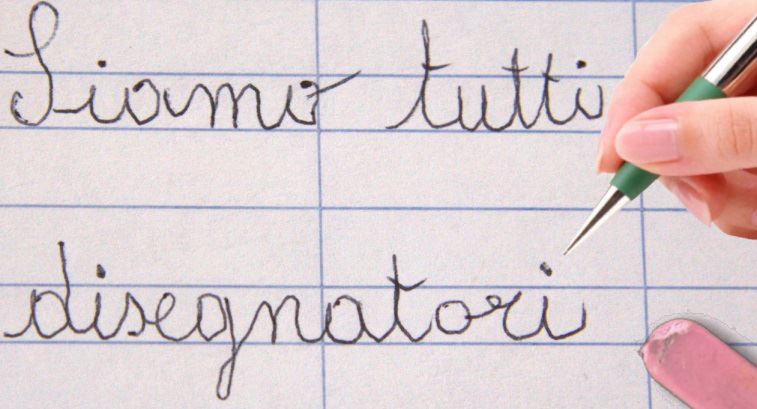 Siamo tutti
disegnatori